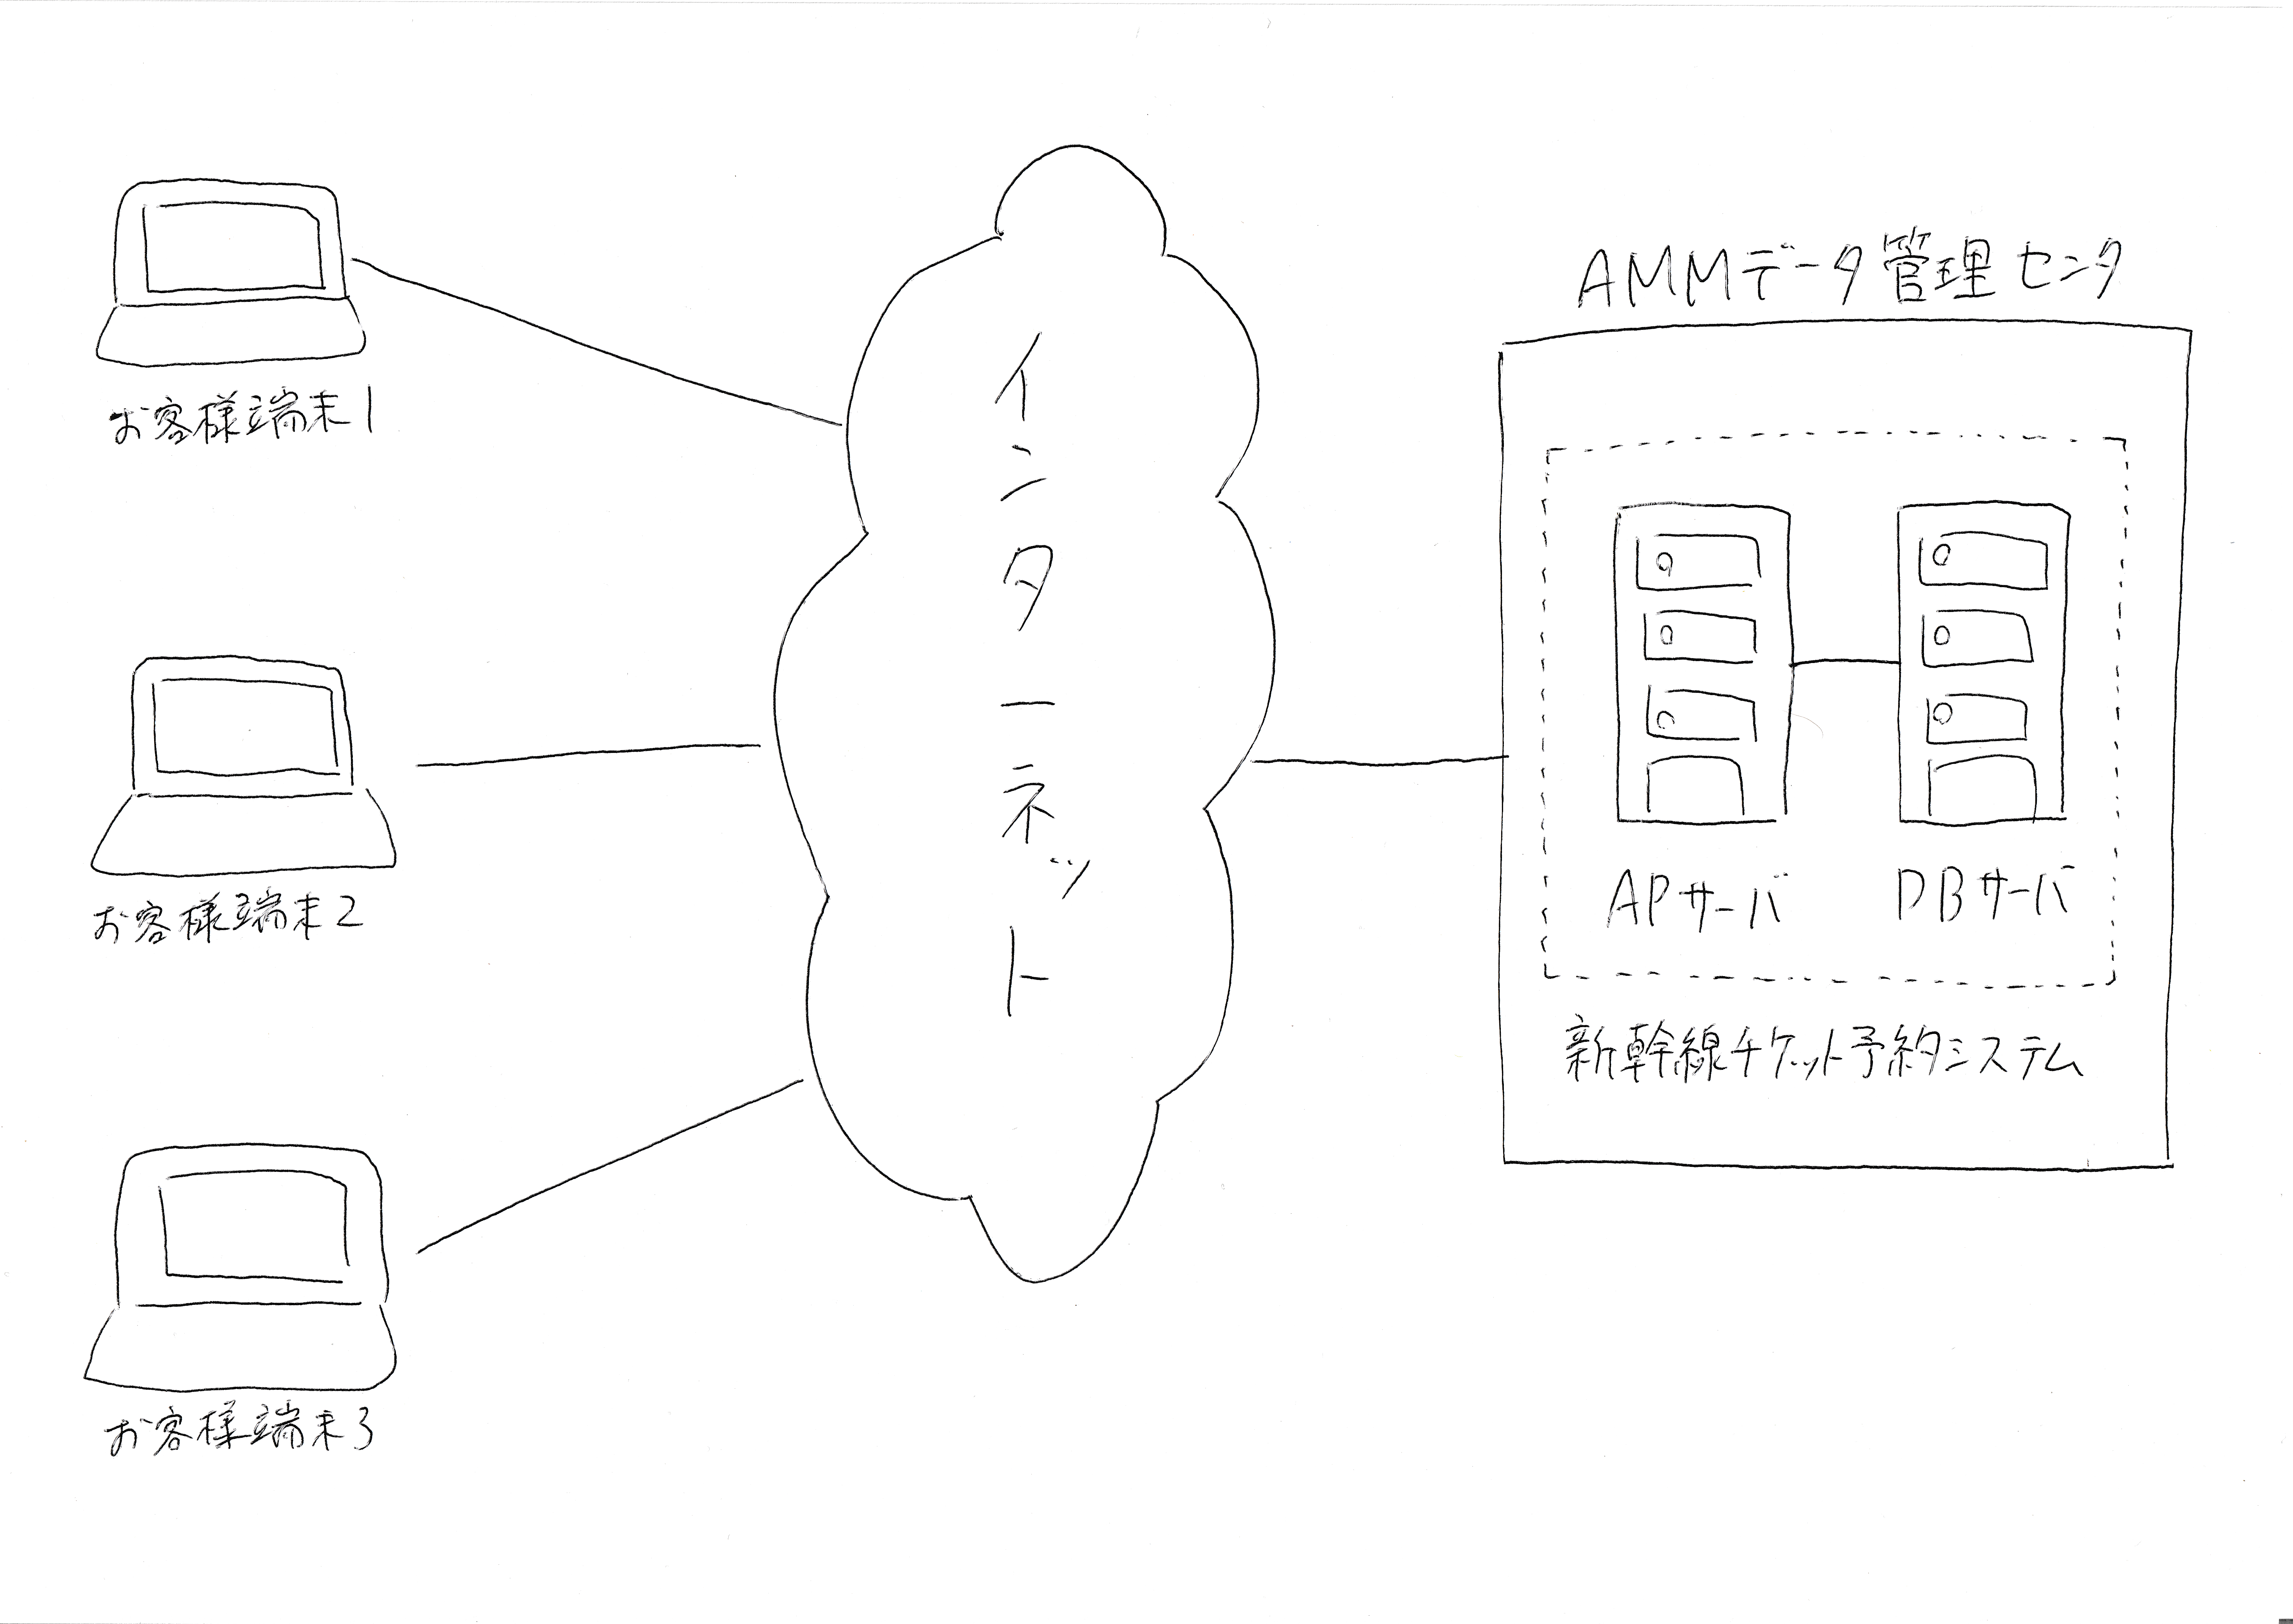 お客様端末1
お客様端末2
お客様端末3
インターネット
AMMデータ管理センタ
APサーバ
DBサーバ
新幹線チケット予約システム